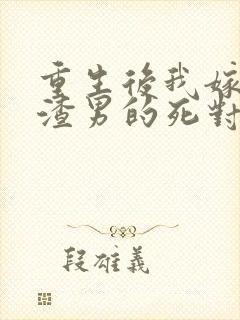 重生後我嫁
渣男的死對
段雄義